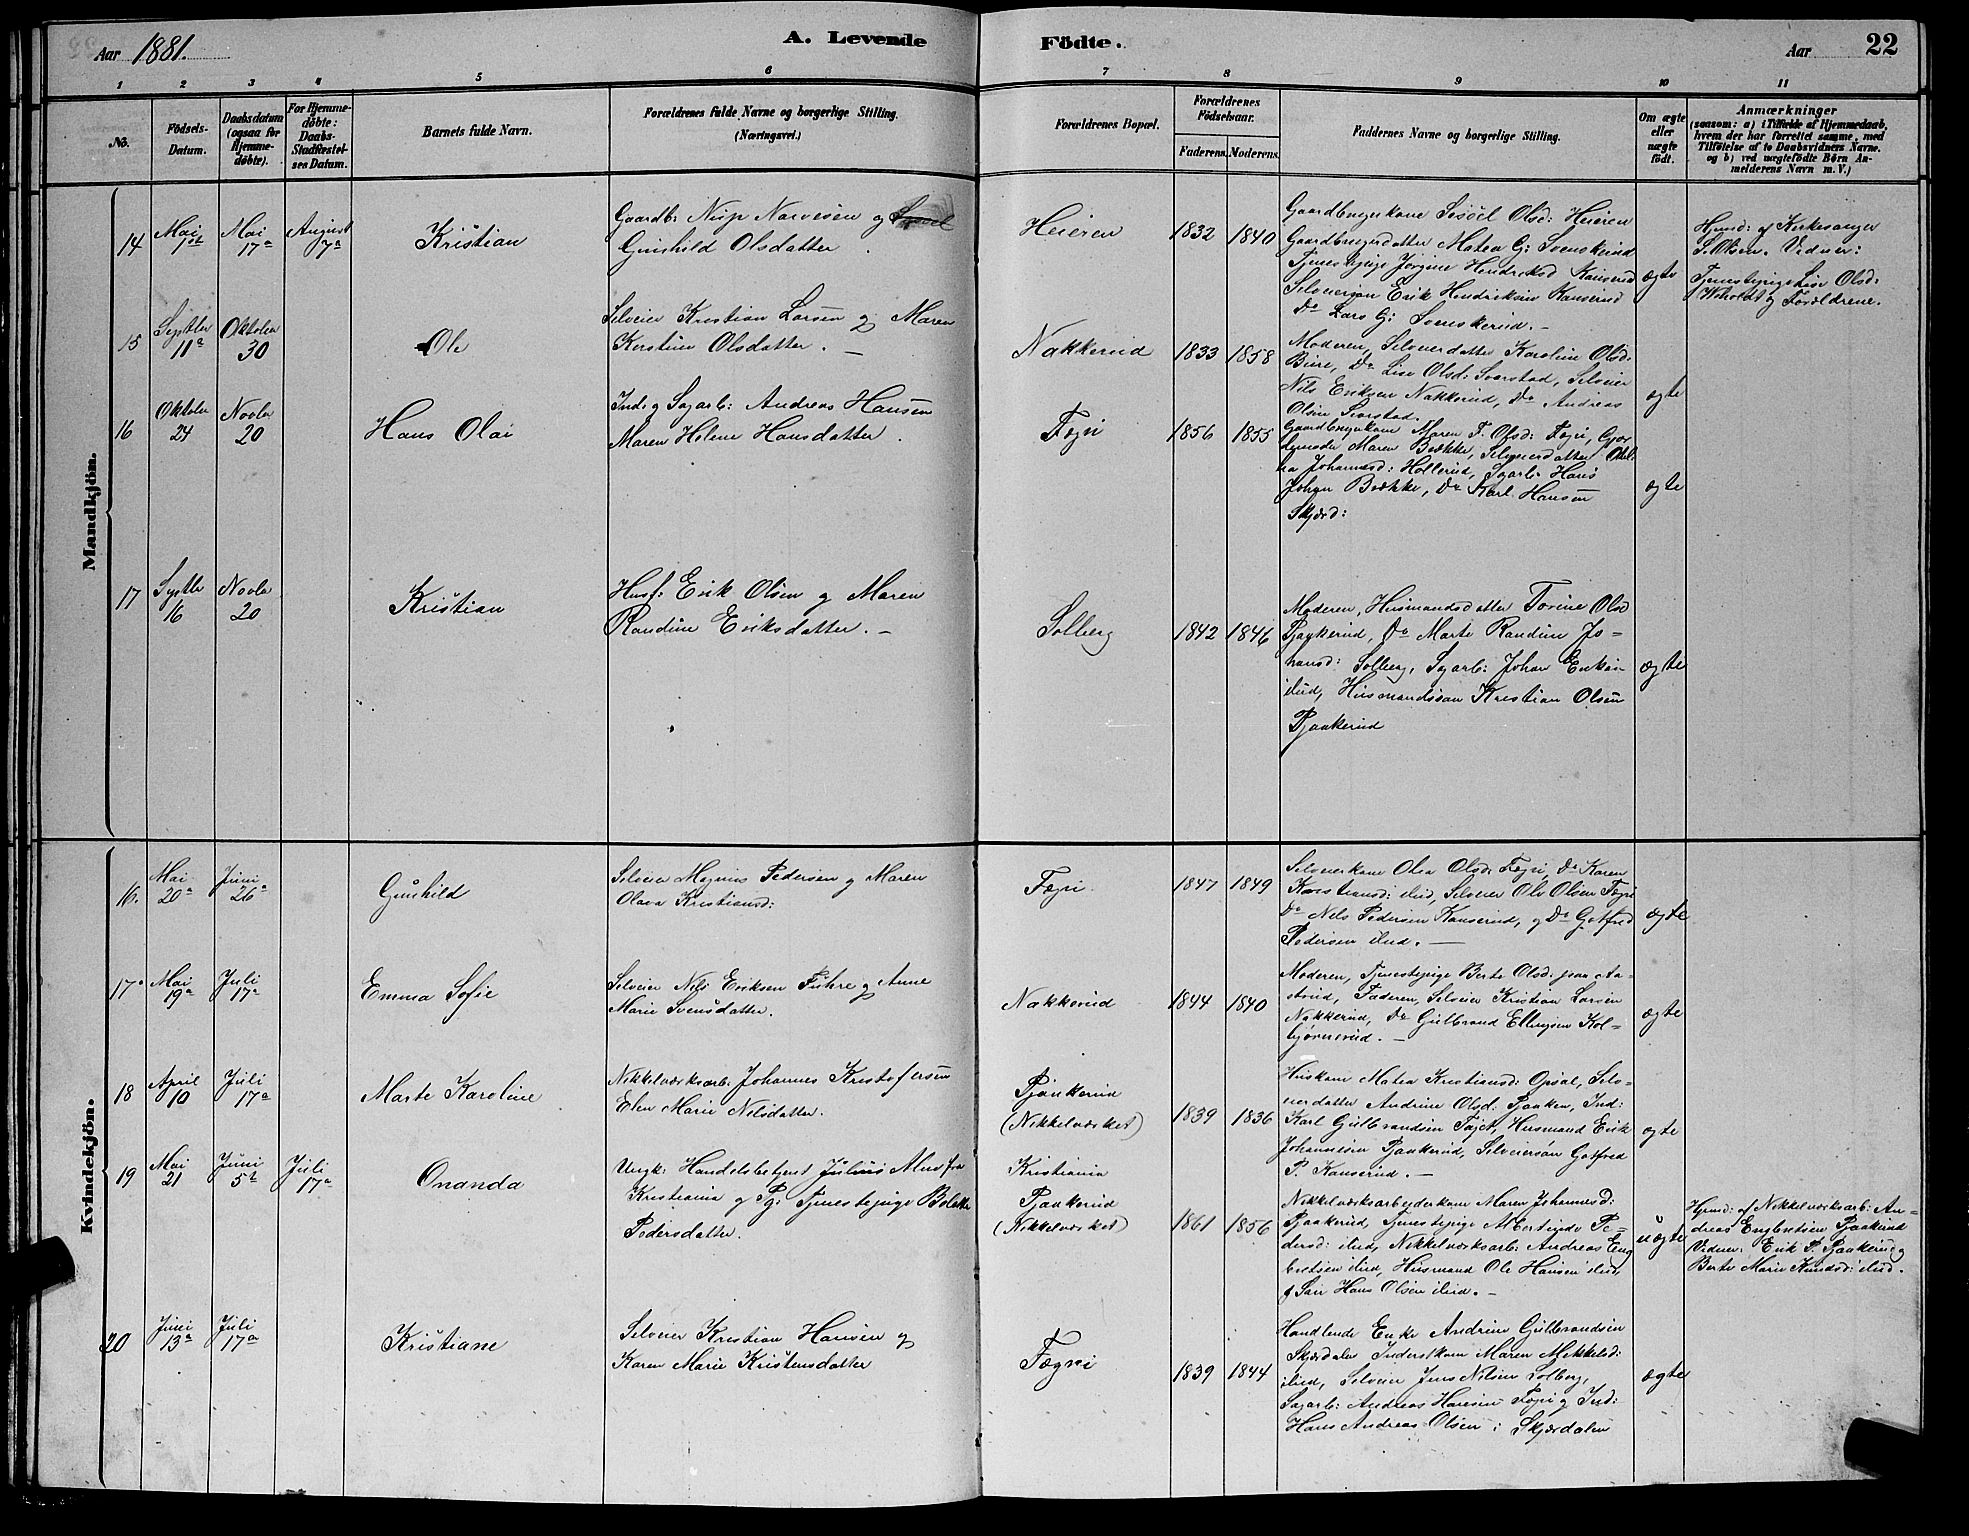 Aar 1881.
A. Levende Födte.
Aar 22
1 2 3 4 5 6 7 8 9 10 11
No.
Födsels-
Datum.
Daabsdatum
(ogsaa for
Hjemme-
döbte).
For Hjemme-
döbte:
Daabs-
Stadfæstel-
ses Datum.
Barnets fulde Navn.
Forældrenes fulde Navne og borgerlige Stilling.
(Næringsvei.)
Forældrenes Bopæl.
Forældrenes
Födselsaar.
Faderens. Moderens.
Faddernes Navne og borgerlige Stilling.
Om ægte
eller
uægte
födt.
Anmærkninger
(saasom: a) i Tilfælde af Hjemmedaab,
hvem der har forrettet samme, med
Tilföielse af to Daabsvidners Navne.
og b) ved uægtefödte Börn An-
melderens Navn m. V.)
Mandkjön.
14
Mai
1ste
Mai
17de
August
7de
Kristian
Gaardb: Narvesen og
Gunhild Olsdatter
Heieren
1832 1840
Gaardbrugerkone Olsd: Heieren
Gaardbrugerdatter Matea G: Svenskerud
Tjenestepige Jørgine Hendriksd Kanserud
Selveiersøn Erik Hendriksen Kanserud
Do Lars G: Svenskerud. -
ægte
Hjmd: af Kirkesanger
Olsen. Vidner:
Tjenestepige Lise Olsd:
og Forældrene.
15
Septbr
11te
Oktober
30
Ole
Selveier Kristian Larsen og Maren
Kirstine Olsdatter. -
Nakkerud
1833 1858
Moderen, Selveierdatter Karoline Olsd:
Bure, Do Lise Olsd: Svarstad, Selveier
Nils Eriksen Nakkerud, Do Andreas
Olsen Svarstad.
ægte
16
Oktober
24
Novbr
20
Hans Olai
Ind: og Sagarb: Andreas Hansen
Maren Helene Hansdatter.
Fægri
1856 1855
Gaardbrugerkone Maren T. Olsd: Fægri,
Maren Bække, Selveierdatter
Johannesd: Hollerud, Sagarb: Hans
Johan Bække, Do Karl Hansen
Skjærd:
ægte
17
Septbr
16
Novbr
20
Kristian
Husf: Erik Olsen og Maren
Randine Eriksdatter. -
Solberg
1842 1846
Moderen, Husmandsdatter Torine Olsd
Pjaakerud, Do Marte Randine Jo-
hansd: Solberg, Sagarb: Johan Eriksen
ibid, Husmandssøn Kristian Olsen
Pjaakerud
ægte
Kvindekjön.
16.
Mai
20de
Juni
26de
Gunhild
Selveier Magnus Pedersen og Maren
Olava Kristiansd:
Fægri
1847 1849
Selveierkone Olea Olsd: Fægri, Do Karen
Kristiansd: ibid, Selveier Ole Olsen Fægri
Do Nils Pedersen Kanserud, og Do Gotfred
Pedersen ibid. -
ægte
17
Mai
19de
Juli
17de
Emma Sofie
Selveier Nils Eriksen Fuhre og Anne
Marie Svensdatter.
Nakkerud
1844 1840
Moderen, Tjenestepige Berte Olsd: paa Aa-
strud, Faderen, Selveier Kristian Larsen
Nakkerud, Do Gulbrand Ellingsen Kol-
bjørnerud. -
ægte
18
April
10
Juli
17de
Marte Karoline
Nikkelværksarb: Johannes Kristofersen
Elen Marie Nilsdatter.
Pjaakerud
(Nikkelværket)
1839 1836
Huskone Matea Kristiansd: Opsal, Selv-
eierdatter Andrine Olsd: Pjaaken, Ind:
Karl Gulbrandsen Husmand Erik
Johannesen Pjaakerud, Selveiersøn Gotfred
P. Kanserud. -
ægte
19
Mai
21
Juni
5te
Juli
17de
Onanda
Ungk: Handelsbetjent Julius fra
Kristiania og Pg: Tjenestepige Bolette
Pedersdatter.
Kristiania
Pjaakerud
(Nikkelværket)
1861 1856
Nikkelværksarbeiderkone Maren Johannesd:
Pjaakerud, Tjenestepige Albertine Pe-
dersd: ibid, Nikkelværksarb: Andreas Eng
bretsen ibid, Husmand Ole Hansen ibid,
og Søn Hans Olsen ibid. -
uægte
Hjmd: af Nikkelværksarb: An-
dreas Engbretsen Pjaakerud
Vidner: Erik P. Pjaakerud og
Berte Marie Knudsd: ibid.
20
Juni
13de
Juli
17de
Kristiane
Selveier Kristian Hansen og
Karen Marie Kristensdatter
Fægri
1839 1844
Handlende Enke Andrine Gulbrandsen
Skjærdalen Inderstkone Maren Mikkelsd:
ibid, Selveier Jens Nilsen Solberg,
Sagarb: Andreas Hansen Fægri og Ind:
Hans Andreas Olsen i Skjærdalen
ægte